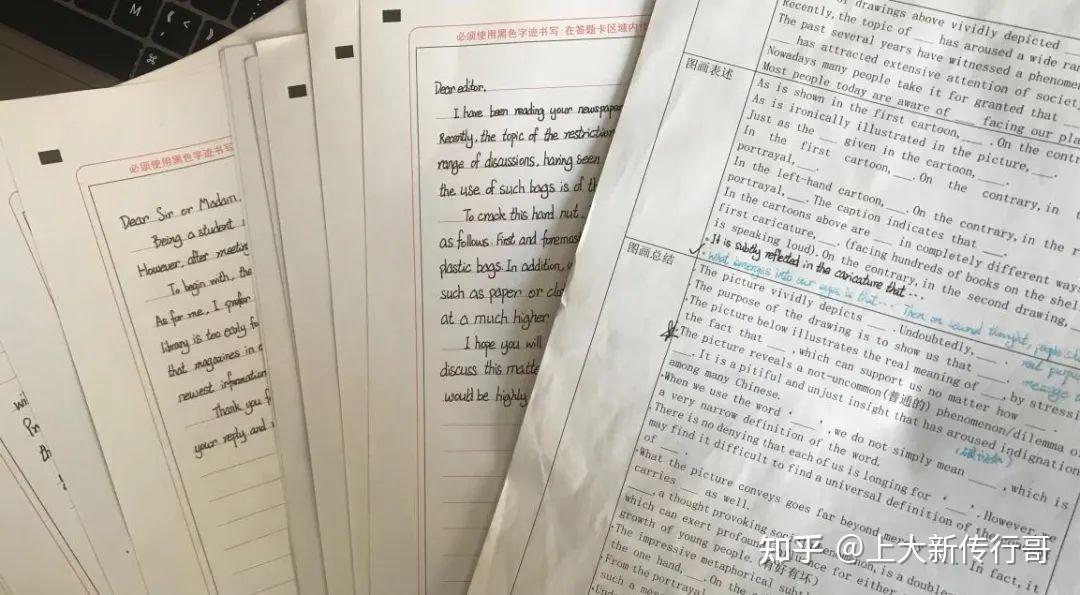 必须使用黑色字迹书写
Dear Sir or Madam,
Being a student
However, after meeting
To begin with, the
As for me, I prefer
library is too early for
that magazines in
newest information
Thank you f
your reply and
必须使用黑色字迹书写:在答题卡区域内作
Dear editor,
I have been reading your newspaper
Recently, the topic of the restriction
range of discussions, having seen
the use of such bags is of th
To crack this hard nut,
as follows. First and foremost
plastic bags. In addition,
such as paper or clo
at a much higher
I hope you will
discuss this matte
would be highly
of drawings above vividly depicted
Recently, the topic of ___ has aroused a wide ran
The past several years have witnessed a phenomen
___ has attracted extensive attention of societ
Nowadays many people take it for granted that
Most people today are aware of ___ facing our pla
图画表述
As is shown in the first cartoon, ___. On the contr
As is ironically illustrated in the picture, ___.
Just as the ___ given in the cartoon, ___.
In the first cartoon, ___. On the contrary, in t
portrayal, ___.
In the left-hand cartoon, ___. On the contrary, in the r
portrayal, ___. The caption indicates that ___.
In the cartoons above are ___ in completely different ways
first caricature, ___. (facing hundreds of books on the shel
is speaking loud). On the contrary, in the second drawing, ___
· It is subtly reflected in the caricature that ...
· What emerges into our eyes is that ... Then on second thought,
图画总结
· The picture vividly depicts ___. Undoubtedly, ___.
· The purpose of the drawing is to show us that ___.
· The picture below illustrates the real meaning of ___, by stressin
the fact that ___, which can support us no matter how ___.
· The picture reveals a not-uncommon(普通的) phenomenon/dilemma o
___. It is a pitiful and unjust insight that has aroused indignation
among many Chinese.
· When we use the word ' ___ ', we do not simply mean ___, which is
a very narrow definition of the word.
· There is no denying that each of us is longing for ' ___ '. However, we
may find it difficult to find a universal definition of the
of ___.
· What the picture conveys goes far beyond
carries ___ as well.
___, a thought provoking social phenomenon, is a double
which can exert profound influence for either
growth of young people. (有好有坏)
· The impressive metaphorical subt
the one hand, ___. On the
· From the portrayal
such a mes
In fact, it
知乎 @上大新传行哥